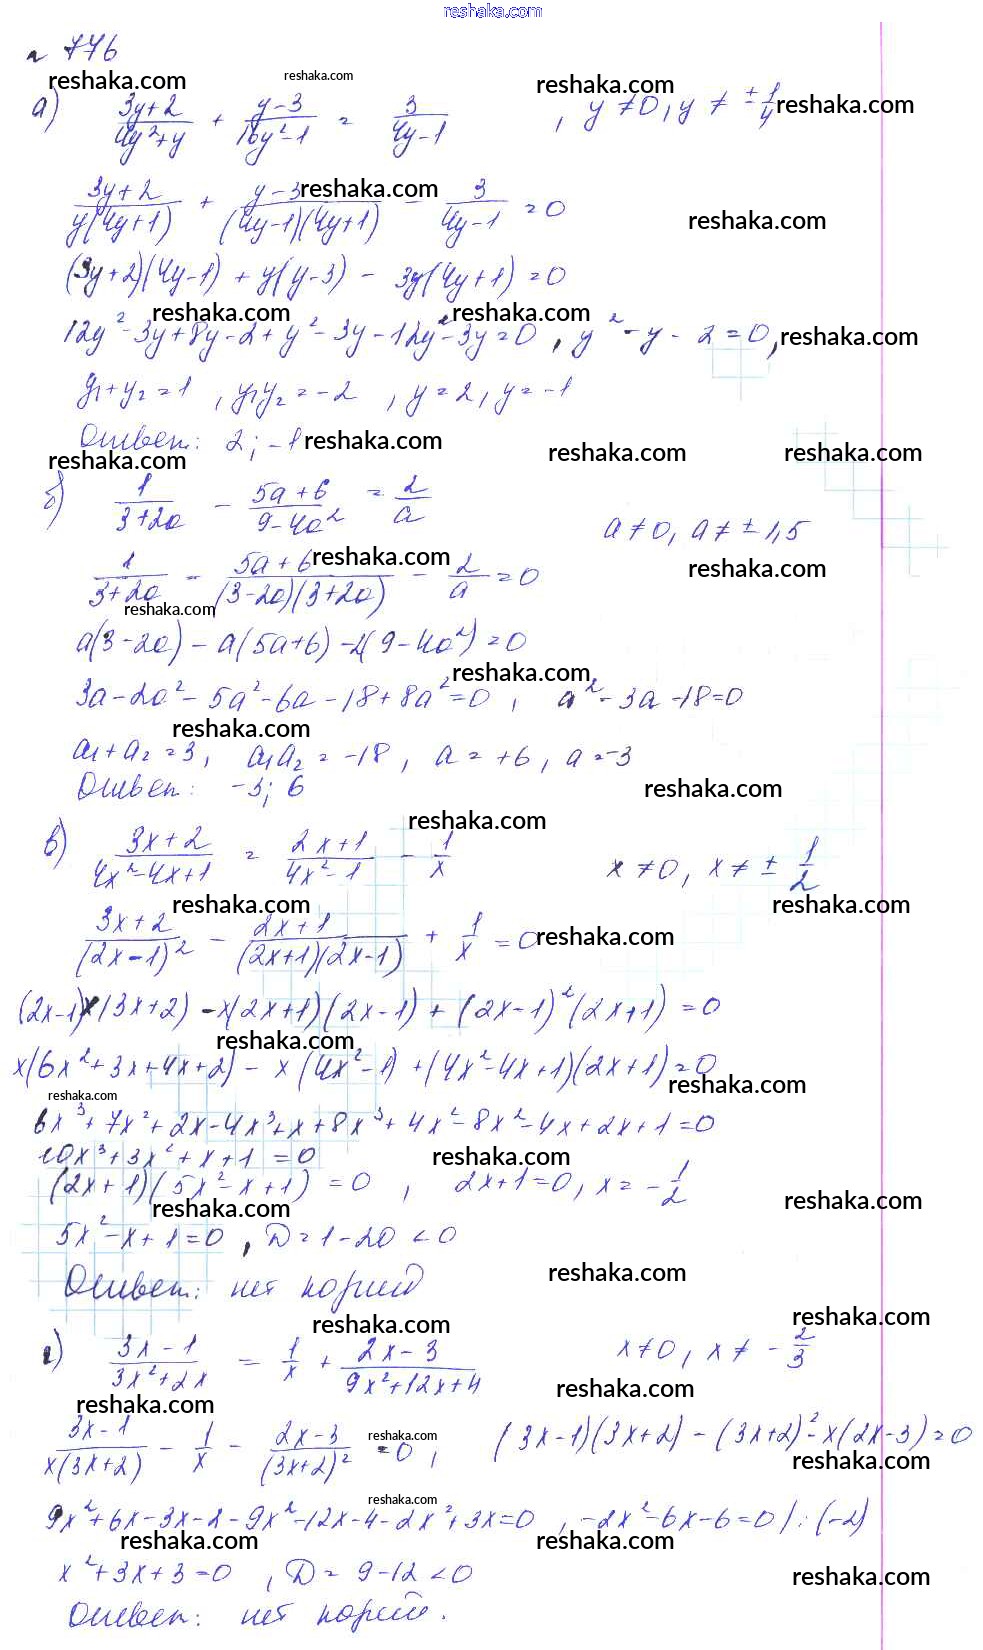 reshaka.com
№ 776
reshaka.com reshaka.com reshaka.com
а) (3y+2)/(4y²+y) + (y-3)/(16y²-1) = 3/(4y-1) , y ≠ 0, y ≠ ± 1/4 reshaka.com
(3y+2)/(y(4y+1)) + (y-3)/((4y-1)(4y+1)) - 3/(4y-1) = 0 reshaka.com
reshaka.com
(3y+2)(4y-1) + y(y-3) - 3y(4y+1) = 0
reshaka.com reshaka.com
12y² - 3y + 8y - 2 + y² - 3y - 12y² - 3y = 0 , y² - y - 2 = 0, reshaka.com
y₁ + y₂ = 1 , y₁y₂ = -2 , y = 2, y = -1
Ответ: 2; -1 reshaka.com
reshaka.com reshaka.com reshaka.com
б) 1/(3+2a) - (5a+6)/(9-4a²) = 2/a a ≠ 0, a ≠ ± 1,5
reshaka.com reshaka.com
1/(3+2a) - (5a+6)/((3-2a)(3+2a)) - 2/a = 0
reshaka.com
a(3-2a) - a(5a+6) - 2(9-4a²) = 0
reshaka.com
3a - 2a² - 5a² - 6a - 18 + 8a² = 0 , a² - 3a - 18 = 0
reshaka.com
a₁ + a₂ = 3, a₁a₂ = -18 , a = +6, a = -3
Ответ: -3; 6 reshaka.com
reshaka.com
в) (3x+2)/(4x²-4x+1) = (2x+1)/(4x²-1) - 1/x x ≠ 0, x ≠ ± 1/2
reshaka.com reshaka.com
(3x+2)/(2x-1)² - (2x+1)/((2x+1)(2x-1)) + 1/x = 0 reshaka.com
(2x-1)x(3x+2) - x(2x+1)(2x-1) + (2x-1)²(2x+1) = 0
reshaka.com
x(6x²+3x+4x+2) - x(4x²-1) + (4x²-4x+1)(2x+1) = 0
reshaka.com reshaka.com
6x³ + 7x² + 2x - 4x³ + x + 8x³ + 4x² - 8x² - 4x + 2x + 1 = 0
10x³ + 3x² + x + 1 = 0 reshaka.com
(2x+1)(5x² - x + 1) = 0 , 2x+1 = 0, x = - 1/2
reshaka.com reshaka.com
5x² - x + 1 = 0 , D = 1 - 20 < 0
Ответ: нет корней reshaka.com
reshaka.com reshaka.com
г) (3x-1)/(3x²+2x) = 1/x + (2x-3)/(9x²+12x+4) x ≠ 0, x ≠ - 2/3
reshaka.com reshaka.com
(3x-1)/(x(3x+2)) - 1/x - (2x-3)/(3x+2)² = 0 , (3x-1)(3x+2) - (3x+2)² - x(2x-3) = 0
reshaka.com reshaka.com
reshaka.com
9x² + 6x - 3x - 2 - 9x² - 12x - 4 - 2x² + 3x = 0 , -2x² - 6x - 6 = 0 / : (-2)
reshaka.com reshaka.com
x² + 3x + 3 = 0 , D = 9 - 12 < 0 reshaka.com
Ответ: нет корней.